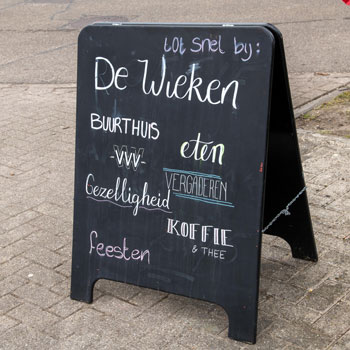 tot snel bij:
De Wieken
BUURTHUIS
-VVV-
Gezelligheid
feesten
eten
VERGADEREN
KOFFIE
& THEE